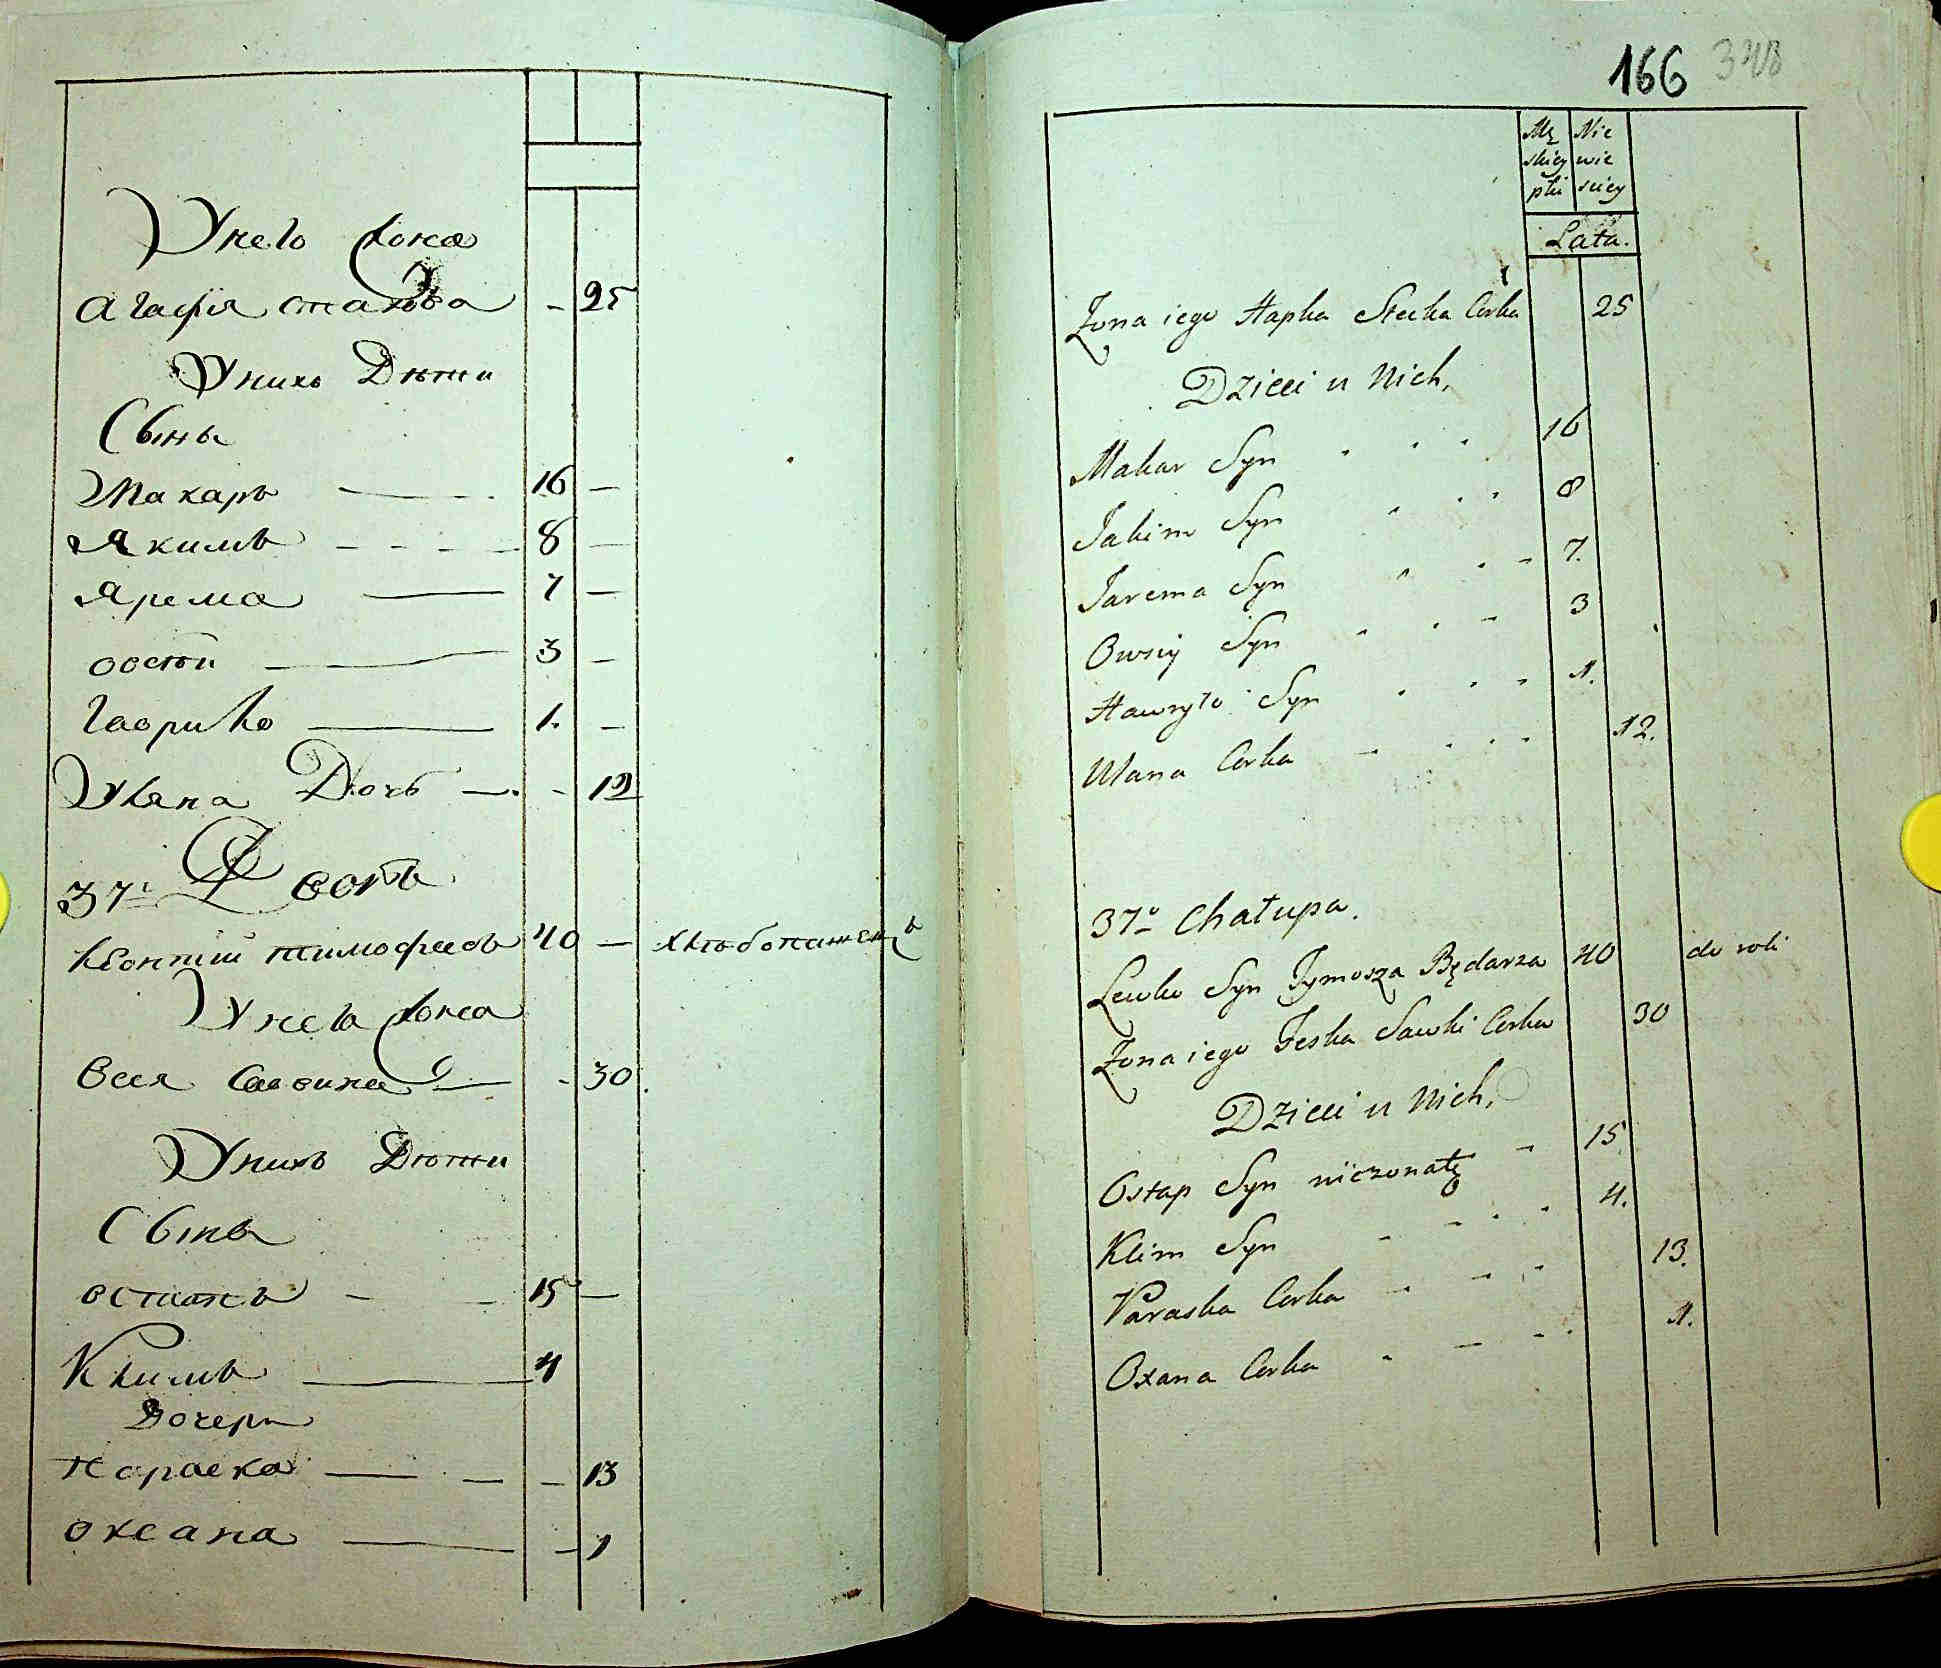 У него жона
агафия стахова - 25
У нихъ Дѣти
Сыны
Макаръ 16 —
Якимъ 8 —
Ярема 7 —
овсѣй 3 —
гаврило 1. —
Уляна Дочь - 12
37й Дворъ
леонтий тимофеевъ 40 — хлѣбопашецъ
У него жона
Феся Савина - 30.
У нихъ Дѣти
Сынъ
остапъ 15 —
Климъ 4
Дочери
параска - 13
оксана - 1
166 348
Mę Nie
skiey wie
płci sciey
Lata.
Żona iego Hapka Stecka Corka 25
Dzieci u Nich,
Makar Syn 16
Jakim Syn 8
Jarema Syn 7.
Owsiy Syn 3
Hawryło Syn 1.
Ulana Corka 12.
37º Chałupa.
Lewko Syn Tymosza Będarza 40 do roli
Żona iego Feska Sawki Corka 30
Dzieci u Nich,
Ostap Syn nieżonaty 15
Klim Syn 4.
Paraska Corka 13.
Oxana Corka 1.